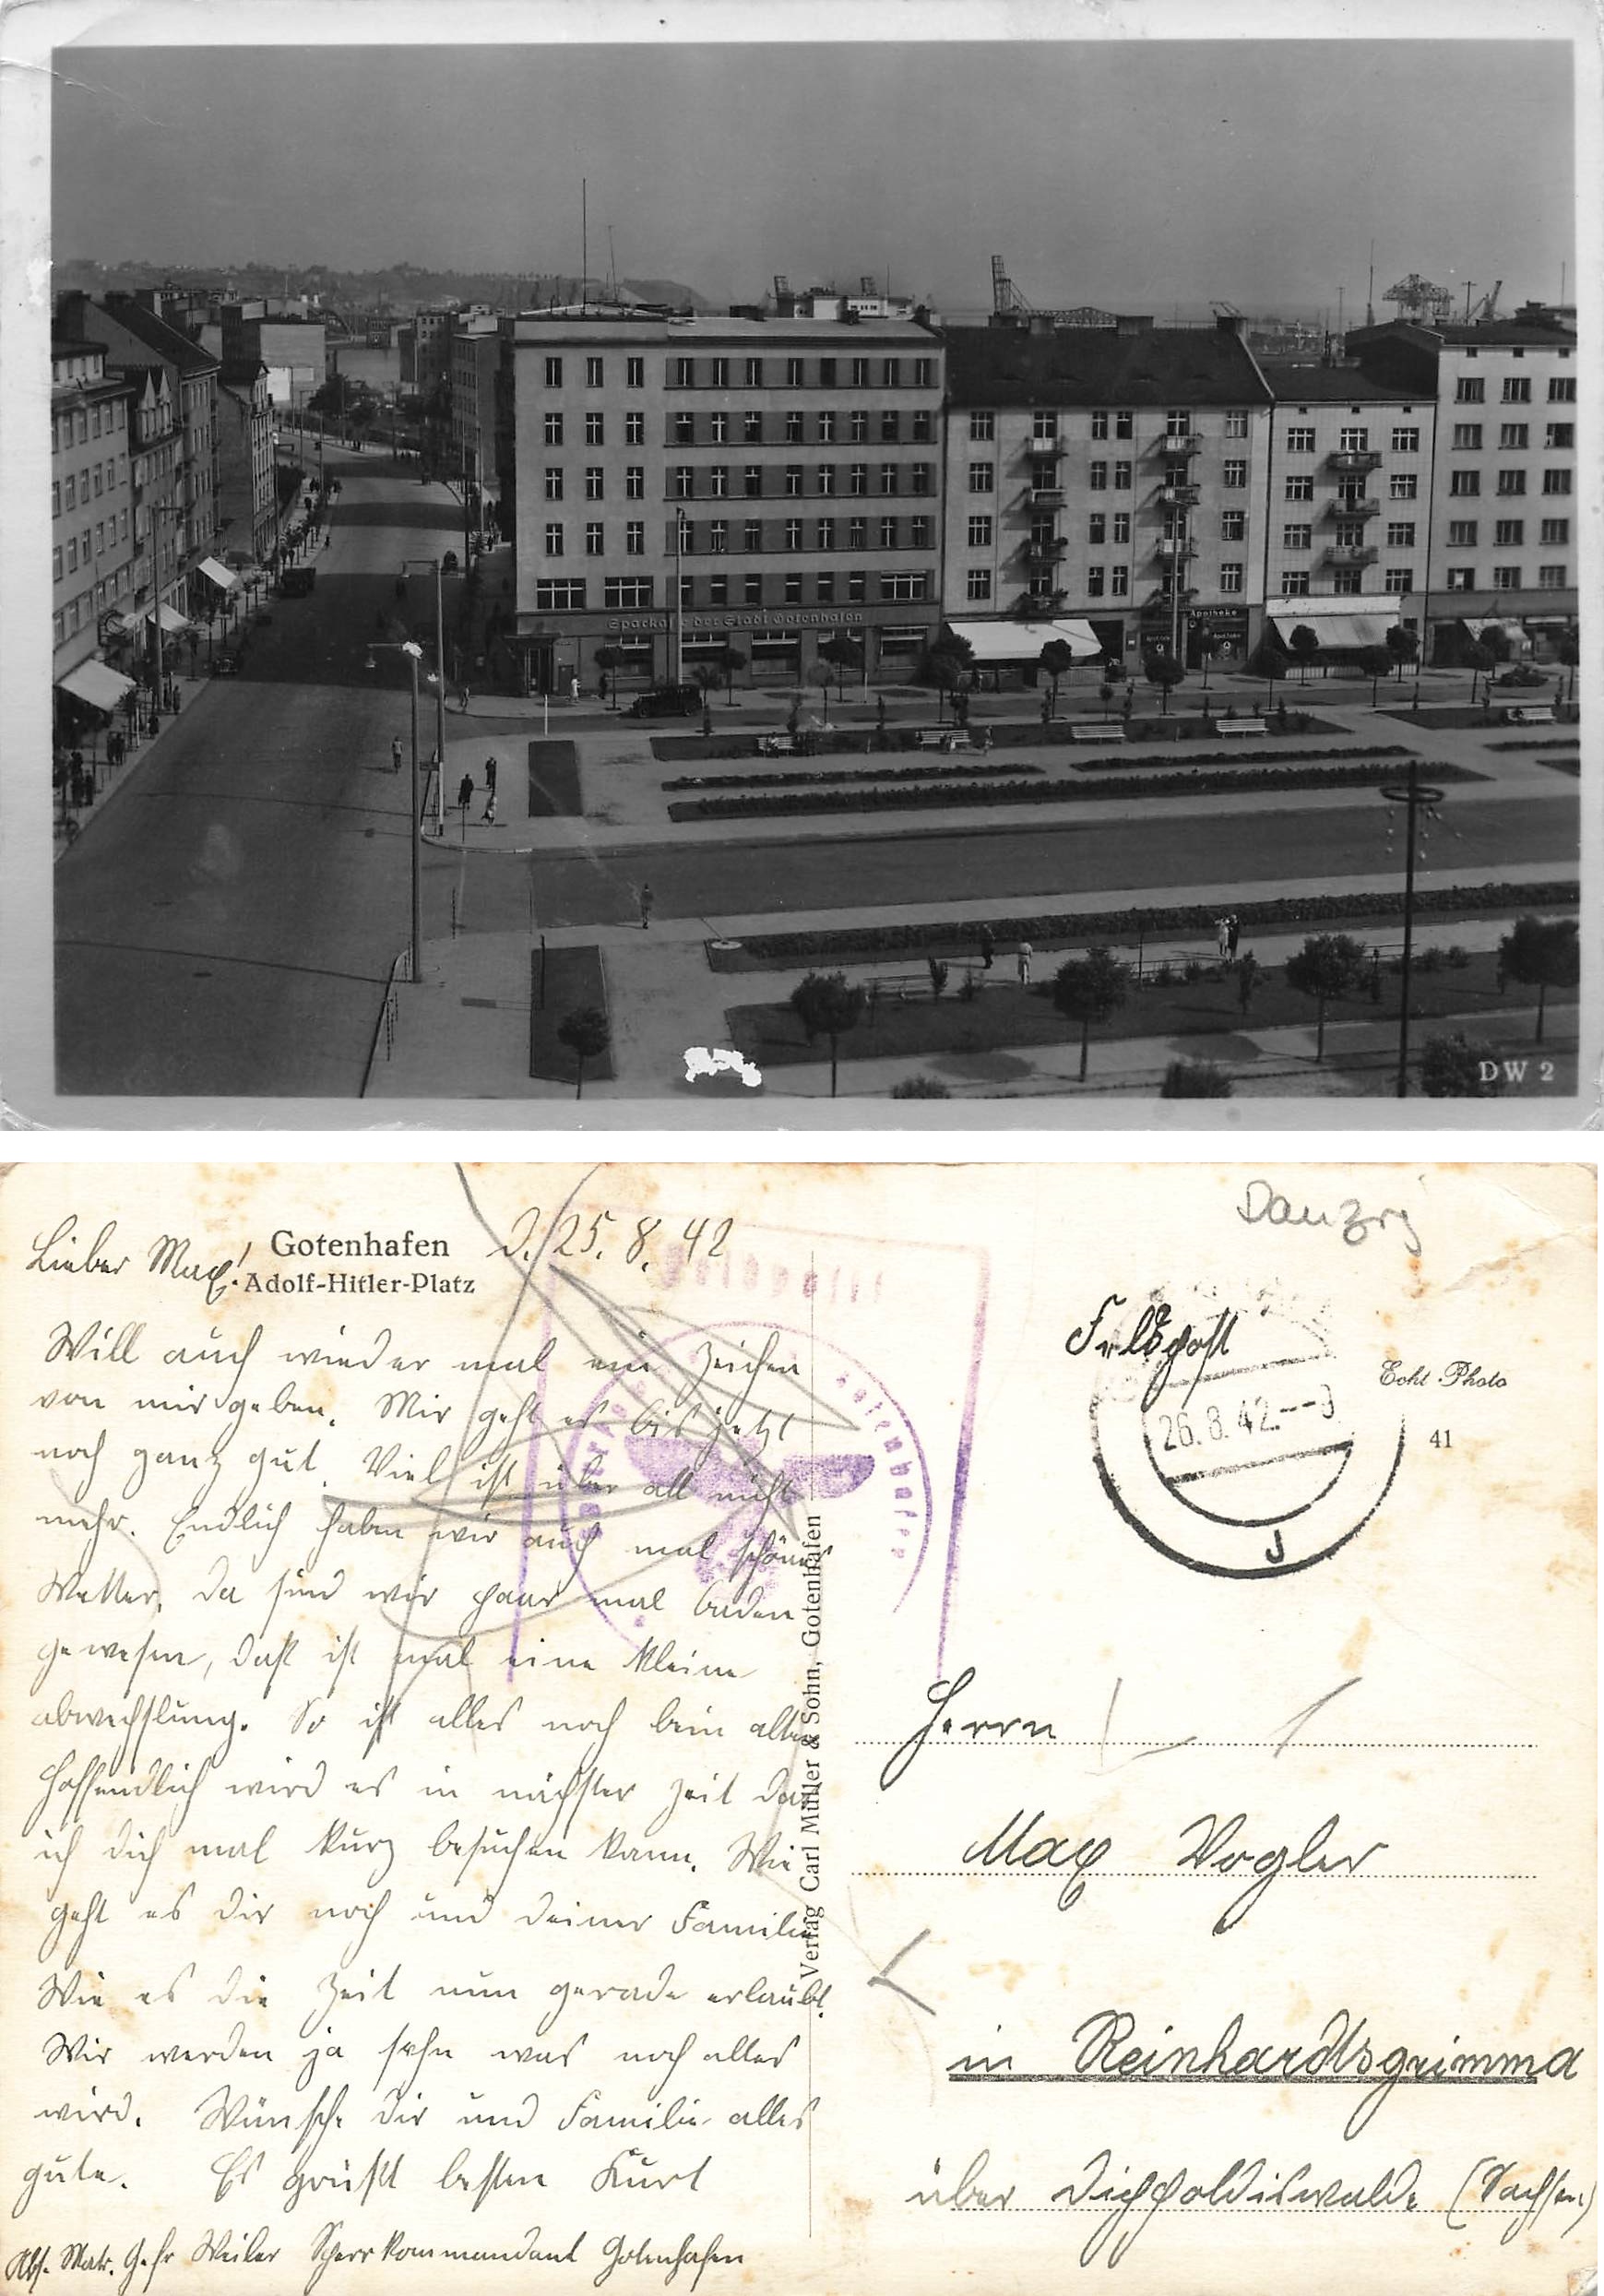 Sparkasse der Stadt Gotenhafen
Apotheke
DW 2
Danzig
Lieber Max!
Gotenhafen
Adolf-Hitler-Platz
d. 25. 8. 42
Will auch wieder mal ein Zeichen
von mir geben. Mir geht es bis jetzt
noch ganz gut. Viel ist über all nicht
mehr. Endlich haben wir auch mal schönes
Wetter, da sind wir paar mal baden
gewesen, daß ist mal eine kleine
abwechslung. So ist alles noch beim alten
Hoffendlich wird es in nächster Zeit das
ich dich mal kurz besuchen kann. Wie
geht es dir noch und deiner Familie
Wie es die Zeit nun gerade erlaubt.
Wir werden ja sehn was noch alles
wird. Wünsche dir und Familie alles
gute. Es grüßt bestens Kurt
Abs. Matr. Gefr Weiler Sperrkommandant Gotenhafen
Verlag Carl Müller & Sohn, Gotenhafen
Gotenhafen
Feldpost
26.8.42
J
Echt Photo
41
Herrn
Max Vogler
in Reinhardtsgrimma
über Dippoldiswalde (Sachsen)